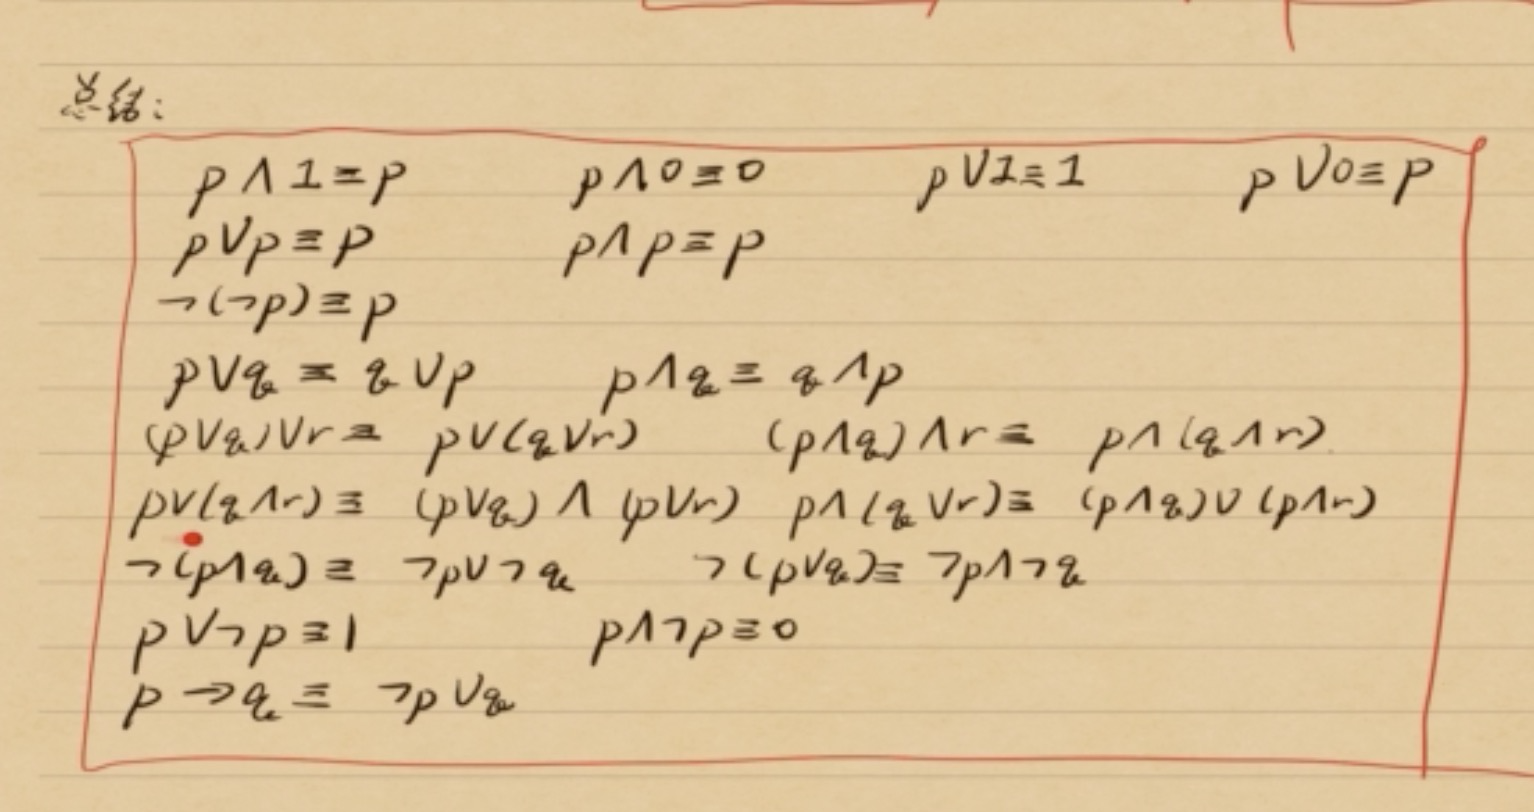 总结:
p∧1≡p p∧0≡0 p∨1≡1 p∨0≡p
p∨p≡p p∧p≡p
¬(¬p)≡p
p∨q≡q∨p p∧q≡q∧p
(p∨q)∨r≡p∨(q∨r) (p∧q)∧r≡p∧(q∧r)
p∨(q∧r)≡(p∨q)∧(p∨r) p∧(q∨r)≡(p∧q)∨(p∧r)
¬(p∧q)≡¬p∨¬q ¬(p∨q)≡¬p∧¬q
p∨¬p≡1 p∧¬p≡0
p→q≡¬p∨q